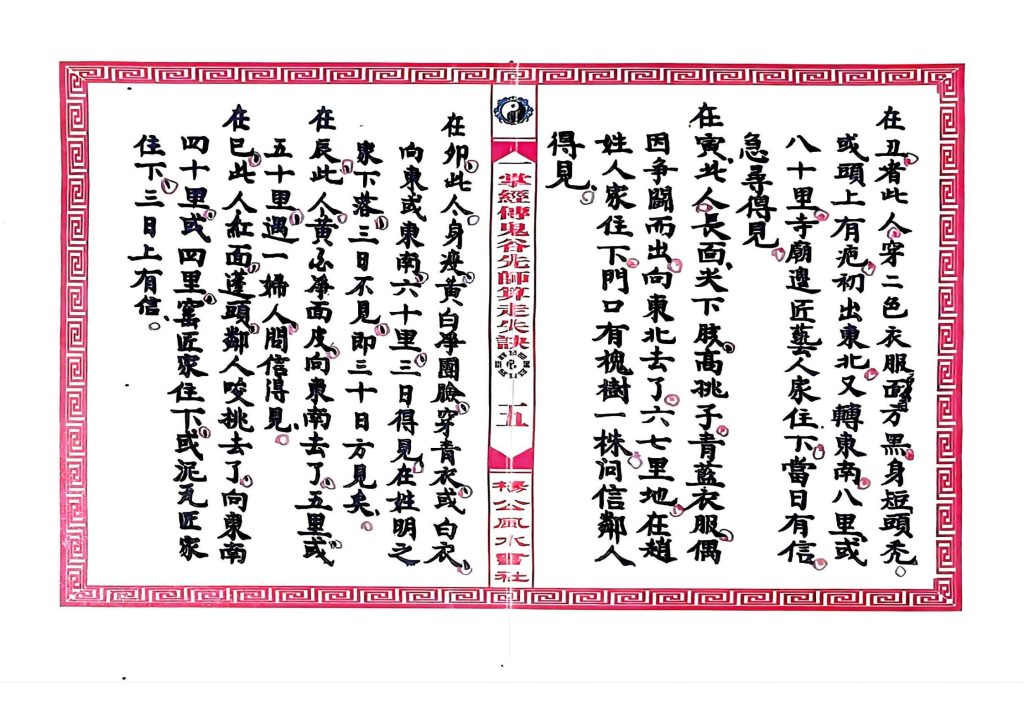 在丑者。此人穿二色衣服。面方黑。身短頭禿。
或頭上有疤。初出東北。又轉東南。八里或
八十里。寺廟邊匠藝人家住下。當日有信。
急尋得見。
在寅。此人長面。尖下胲。高挑子。青藍衣服。偶
因爭鬪而出。向東北去了。六七里地。在趙
姓人家住下。門口有槐樹一株。问信鄰人
得見。
一掌經傳鬼谷先師算走失訣
一五
楊公風水書社
在卯。此人身瘦。黃白淨團臉。穿青衣或白衣。
向東或東南。六十里。三日得見。在姓明之
家下落。三日不見。即三十日方見矣。
在辰。此人黃淨面皮。向東南去了。五里或
五十里。遇一婦人。問信得見。
在巳。此人紅面。蓬頭。鄰人咬挑去了。向東南
四十里。或四里。窰匠家住下。或泥瓦匠家
住下。三日上有信。